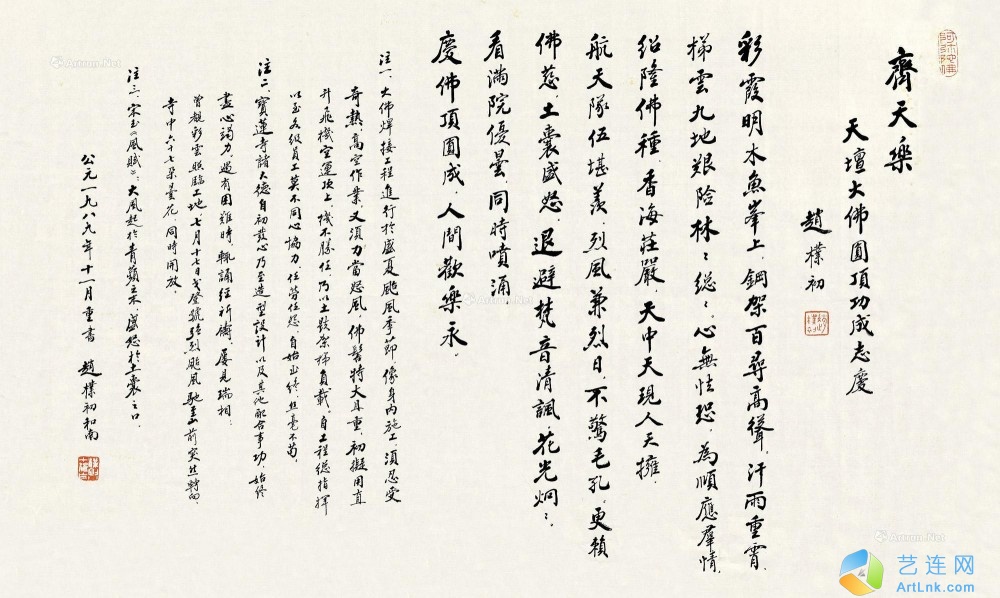 齊天樂
天壇大佛圓頂功成志慶
趙樸初
彩霞明木魚峯上，鋼架百尋高聳，汗雨重霄，
梯雲九地，艱險林林總總，心無怯恐，為順應羣情，
紹隆佛種，香海莊嚴，天中天現人天擁。
航天隊伍堪羨，烈風兼烈日，不驚毛孔，更賴
佛慈，土囊盛怒，退避梵音清諷，花光炯炯，
看滿院優曇，同時噴涌，
慶佛頂圓成，人間歡樂永。
注一、大佛焊接工程進行於盛夏颱風季節，像身內施工，須忍受
奇熱，高空作業又須力當怒風，佛髻特大且重，初擬用直
升飛機空運頂上，機不勝任，乃以土
以至各級員工莫不同心協力，任勞任怨，自始至終，絲毫不苟。
注二、寶蓮寺諸大德自初發心乃至造型設計以及其他配合事功，始終
盡心竭力，遇有困難時，輒誦經祈禱，屢見瑞相，
曾覩彩雲照臨工地，七月十七日戈登號強烈颱風馳至山前突然轉向，
寺中六十七朵曇花同時開放。
注三、宋玉《風賦》：大風起於青蘋之末，盛怒於土囊之口。
公元一九八九年十一月重書 趙樸初和南
Artron.Net
艺连网
ArtLnk.com